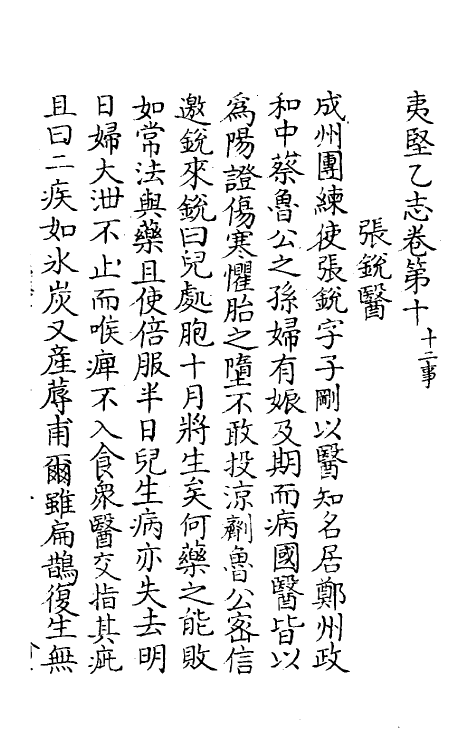 夷堅乙志卷第十 十二事
張銳醫
成州團練使張銳字子剛以醫知名居鄭州政
和中蔡魯公之孫婦有娠及期而病國醫皆以
爲陽證傷寒懼胎之墮不敢投涼劑魯公密信
邀銳來銳曰兒處胞十月將生矣何藥之能敗
如常法與藥且使倍服半日兒生病亦失去明
日婦大泄不止而喉痺不入食衆醫交指其疵
且曰二疾如氷炭又產蓐甫爾雖扁鵲復生無